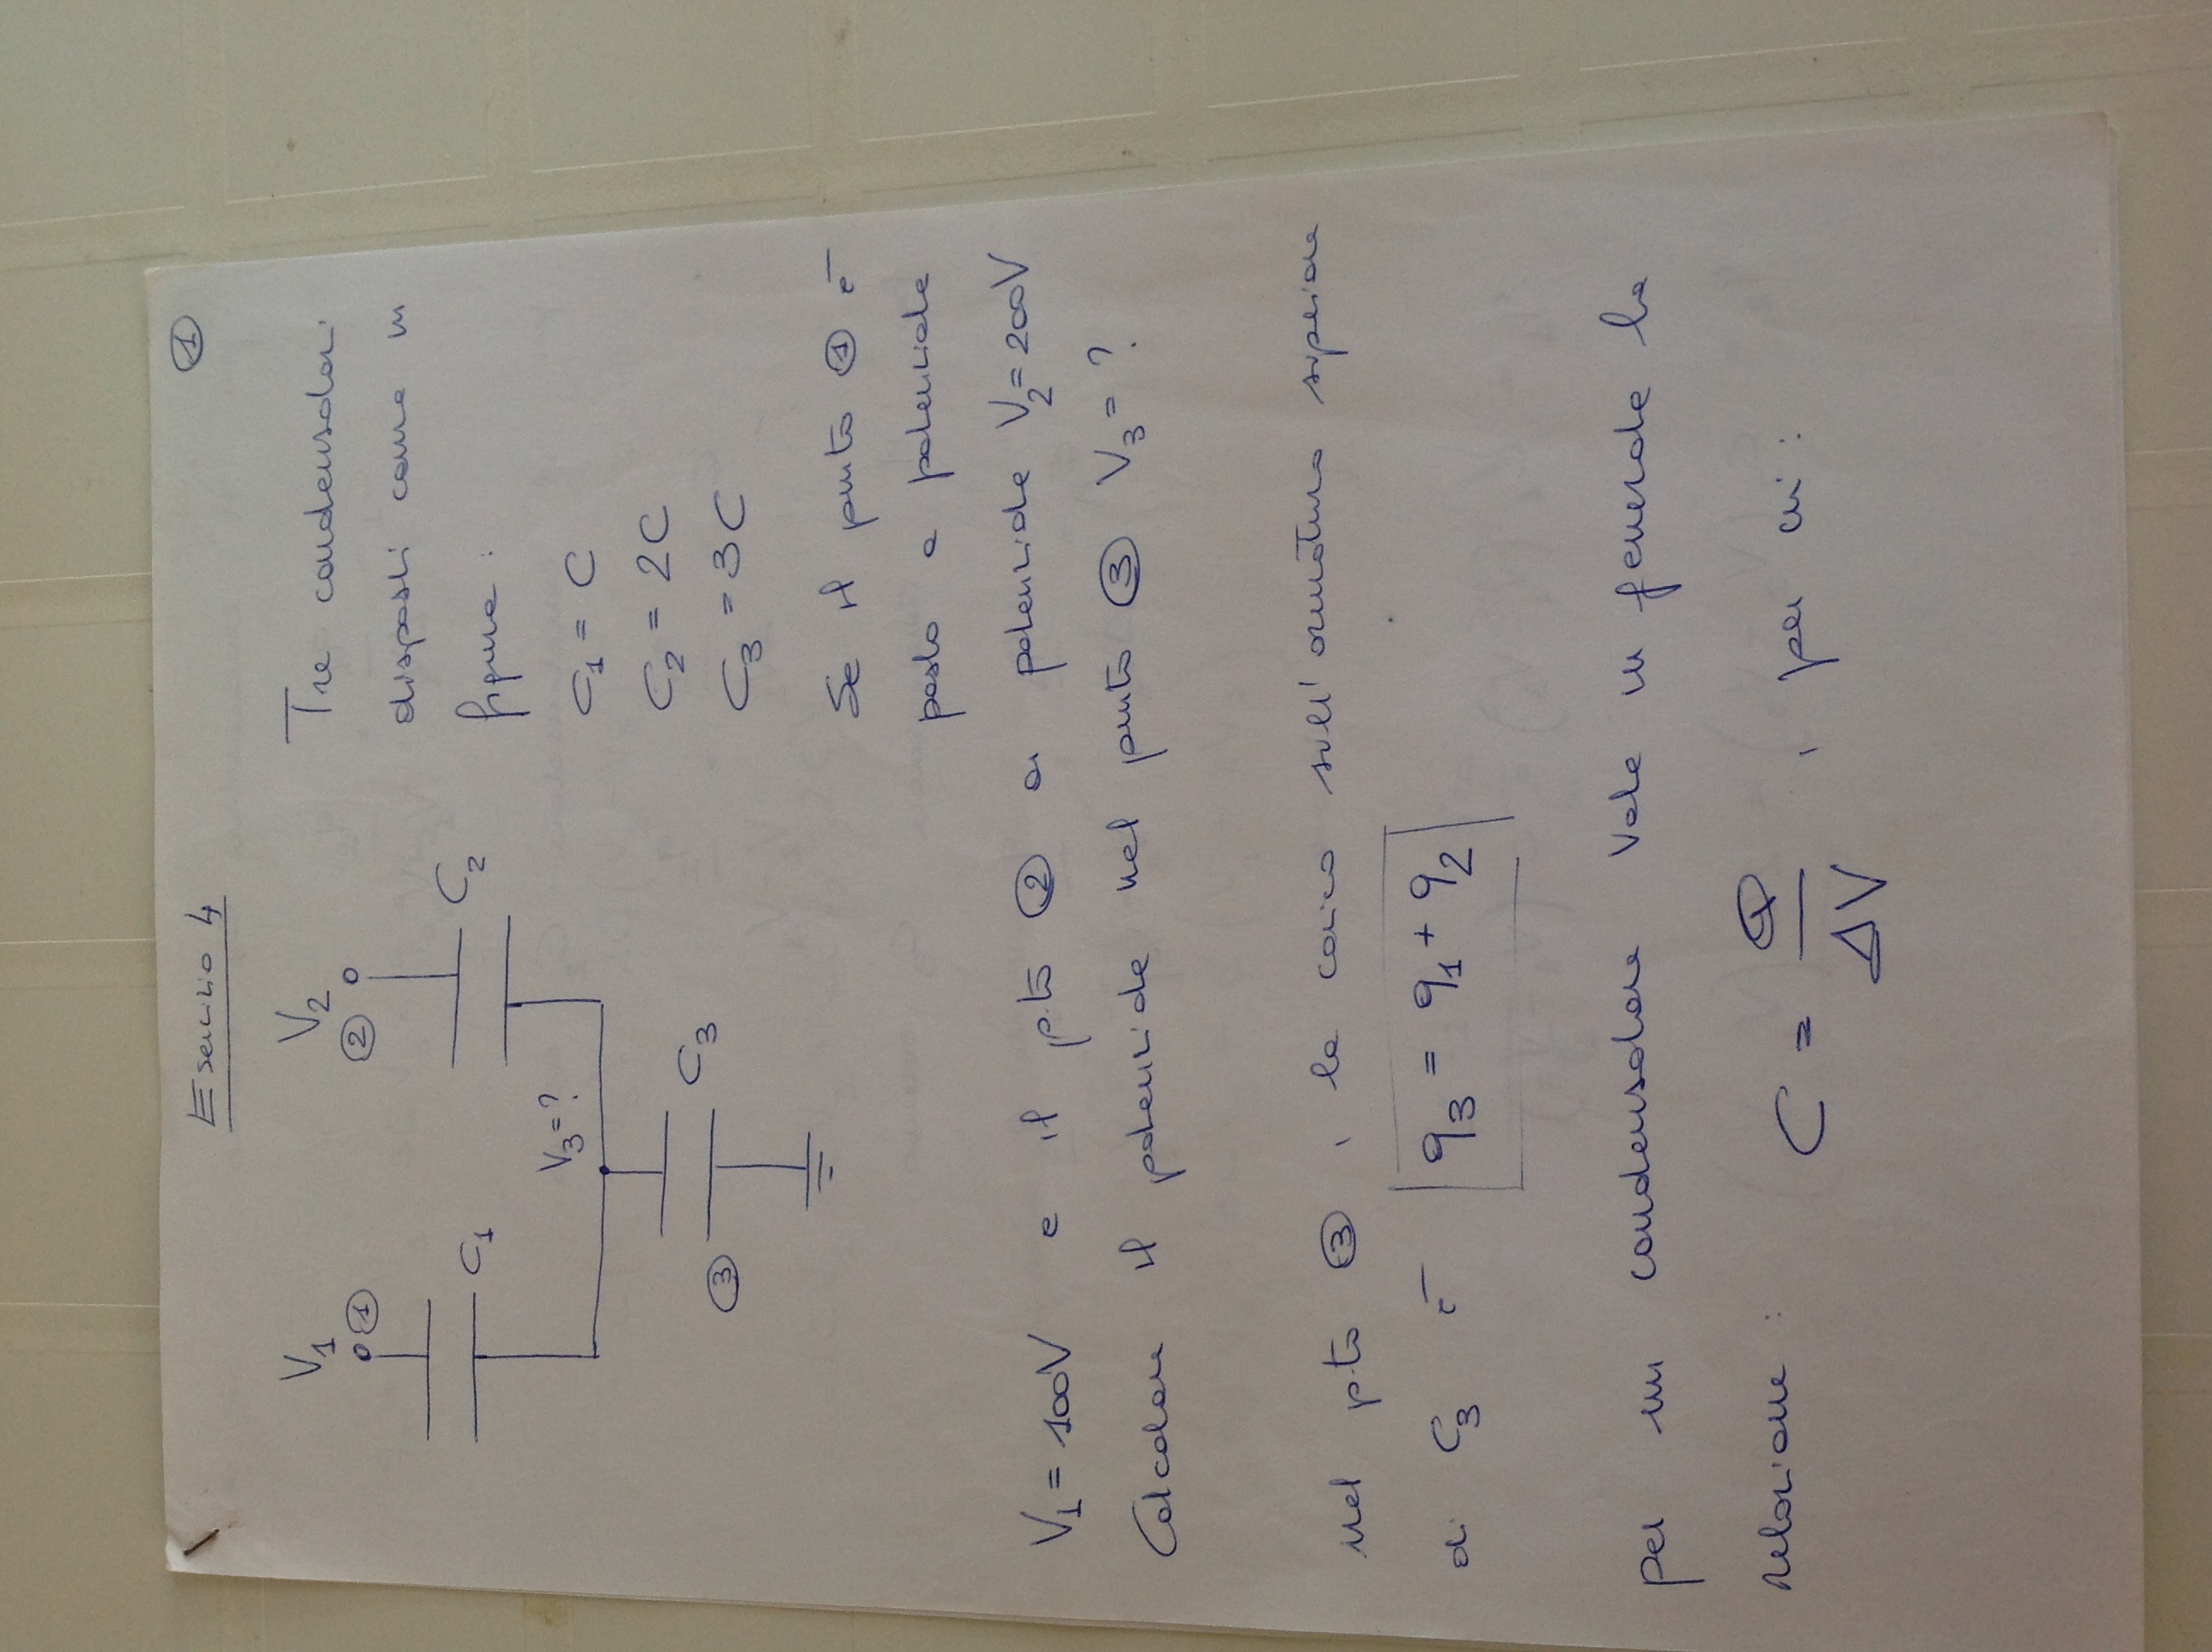 Esercizio 4
①
V₁
V₂
①
②
C₁
C₂
V₃=?
C₃
③
Tre condensatori
disposti come in
figura:
C₁ = C
C₂ = 2C
C₃ = 3C
Se il punto ① è
posto a potenziale
V₁ = 100V e il p.to ② a potenziale V₂ = 200V
Calcolare il potenziale nel punto ③ V₃ = ?
nel pto ③, la carica sull'armatura superiore
di C₃ è q₃ = q₁ + q₂
per un condensatore vale in generale la
relazione: C = Q/ΔV, per cui: